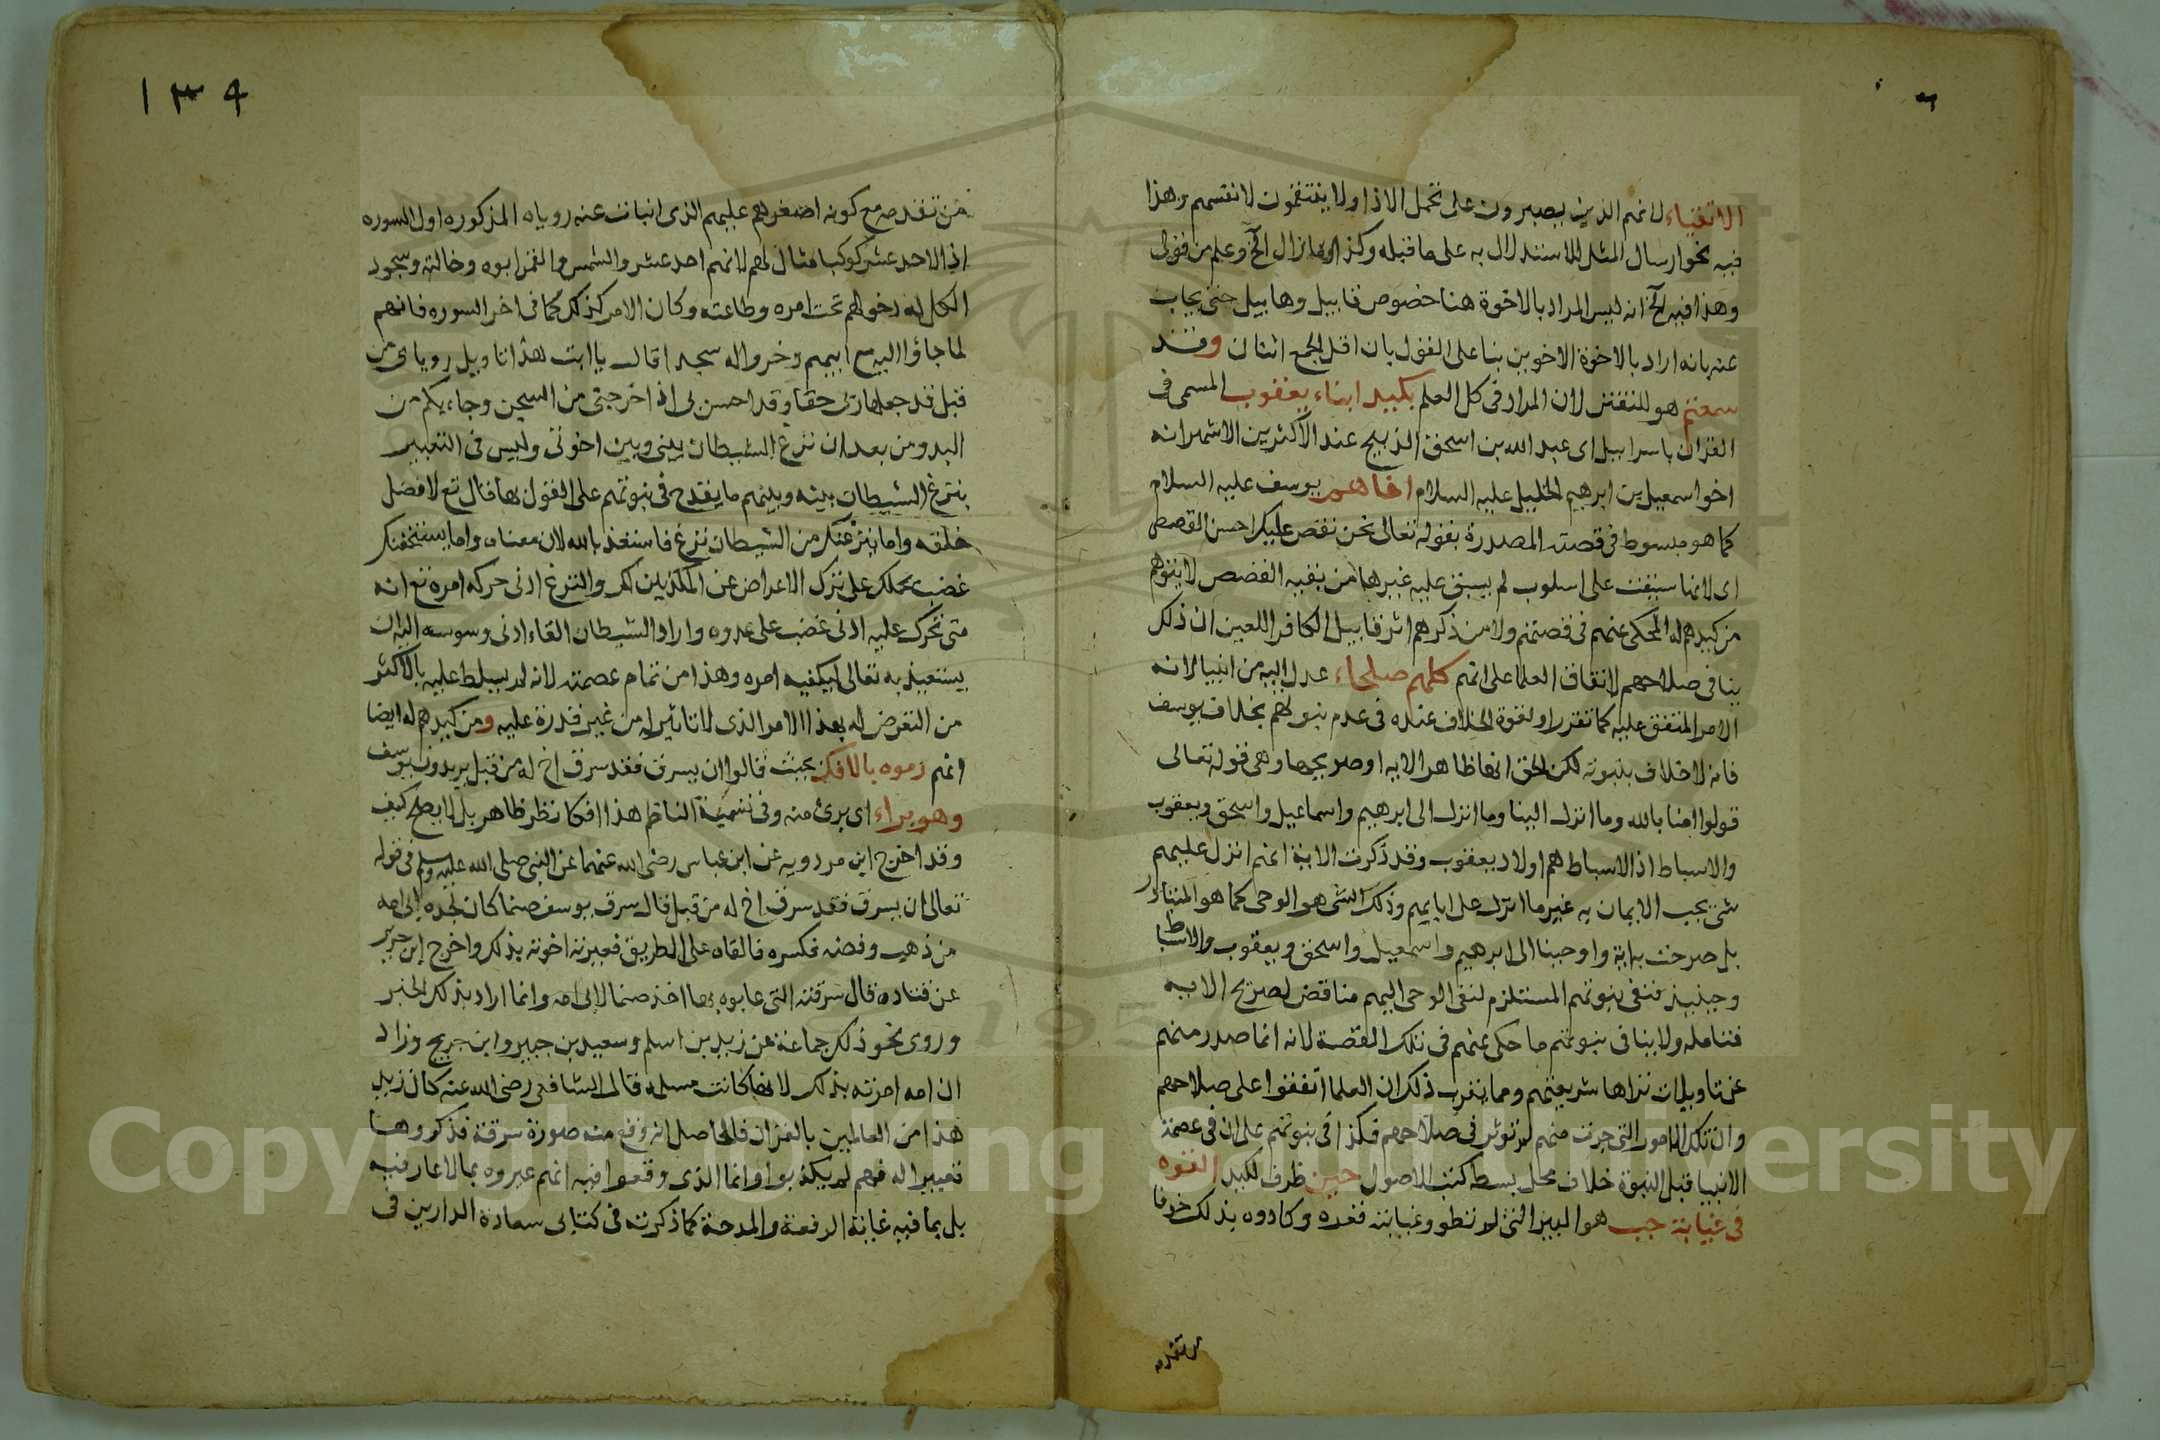 الاتقياء لانهم الذين يصبرون على تحمل الاذا ولا ينتقمون لانفسهم وهذا
فيه نحو ارسال المثل للاستدلال به على ما قبله وكذا وما زال الخ وعلم من قولى
وهذا فيه الخ انه ليس المراد بالاخوة هنا خصوص قابيل وهابيل حتى يجاب
عنه بانه اراد بالاخوة الاخوين بنا على القول بان اقل الجمع اثنان وقد
سمعتم هو للتفنن لان المدار فى كل العلم بكيد ابناء يعقوب المسمى فى
القران باسراييل اى عبد الله بن اسحق الذبيح عند الاكثرين الاشهر انه
اخو اسمعيل بن ابرهيم الخليل عليه السلام اخاهم يوسف عليه السلام
كما هو مبسوط فى قصته المصدرة بقوله تعالى نحن نقص عليك احسن القصص
اى لانها سيقت على اسلوب لم يسبق عليه غيرها من بقيه القصص لا يتوهم
من كيدهم له المحكى عنهم فى قصتهم ولا من ذكرهم اثر قابيل الكافر اللعين ان ذلك
ينافى صلاحهم لاتفاق العلما على انهم كلهم صلحاء عدل اليه من انبيا لانه
الامر المتفق عليه كما تقرر او لقوة الخلاف عنده فى عدم نبوتهم بخلاف يوسف
فانه لا خلاف بنبوته لكن الحق انها ظاهر الايه او صريحها وهى قوله تعالى
قولوا امنا بالله وما انزل الينا وما انزل الى ابرهيم واسماعيل واسحق ويعقوب
والاسباط اذ الاسباط هم اولاد يعقوب وقد ذكرت الاية انهم انزل عليهم
شئ يجب الايمان به غير ما انزل على ابايهم وذلك الشى هو الوحى كما هو المتبادر
بل صرحت به اية واوحينا الى ابرهيم واسمعيل واسحق ويعقوب والاسباط
وحينيذ فنفى نبوتهم المستلزم لنفى الوحى اليهم مناقض لصريح الايه
فتامله ولا ينافى نبوتهم ما حكى عنهم فى تلك القصة لانه انما صدر منهم
عن تاويلات نراها شريعتهم ومما يقرب ذلك ان العلما اتفقوا على صلاحهم
وان تلك الامور التى جرت منهم لم توثر فى صلاحهم فكذا فى نبوتهم على ان فى عصمة
الانبيا قبل النبوة خلاف محل بسطه كتب الاصول حين ظرف لكيد القوه
فى غيابة جب هو البير التى لم تطو وغيابته قعره وكادوه بذلك خوفا
من تقدمه
من تقدمه مع كونه اصغرهم عليهم الذى انبات عنه روياه المذكوره اول السوره
اذ الاحد عشر كوكبا مثال لهم لانهم احد عشر والشمس والقمر ابوه وخالته وسجود
الكل له دخولهم تحت امره وطاعته وكان الامر كذلك كما فى اخر السوره فانهم
لما جاؤا اليه مع ابيهم وخروا له سجدا قال يا ابت هذا تاويل روياى من
قبل قد جعلها ربى حقا وقد احسن بى اذ اخرجنى من السجن وجاء بكم من
البدو من بعد ان نزغ الشيطان بينى وبين اخوتى وليس فى التعبير
بنزغ الشيطان بينه وبينهم ما يقدح فى نبوتهم على القول بها قال تع لافضل
خلقه واما ينزغنك من الشيطان نزغ فاستعذ بالله لان معناه واما يستخفنك
غضب يحملك على ترك الاعراض عن المكذبين لك والنزغ ادنى حركه امره تع انه
متى تحرك عليه ادنى غضب على عدوه واراد الشيطان القاء ادنى وسوسه اليه ان
يستعيذ به تعالى ليكفيه امره وهذا من تمام عصمته لانه لم يسلط عليه باكثر
من التعرض له بهذا الامر الذى لا تاثير له من غير قدرة عليه ومن كيدهم له ايضا
انهم رموه بالافك بحيث قالوا ان يسرق فقد سرق اخ له من قبل يريدون يوسف
وهو براء اى برئ منه وفى تسمية الناظم هذا افكا نظر ظاهر بل لا يصح كيف
وقد اخرج ابن مردويه عن ابن عباس رضى الله عنهما عن النبى صلى الله عليه وسلم فى قوله
تعالى ان يسرق فقد سرق اخ له من قبل قال سرق يوسف صنما كان لجده ابى امه
من ذهب وفضه فكسره فالقاه على الطريق فعيرته اخوته بذلك واخرج ابن جرير
عن قتاده قال سرقته التى عابوه بها اخذ صنما لابى امه وانما اراد بذلك الخير
وروى نحو ذلك جماعة عن زيد بن اسلم وسعيد بن جبير وابن جريج وزاد
ان امه امرته بذلك لانها كانت مسلمه قال الشافعى رضى الله عنه كان زيد
هذا من العالمين بالقران فالحاصل انه وقع منه صورة سرقة فذكروها
تعييرا له فهم لم يكذبوا وانما الذى وقعوا فيه انهم عيروه بما لا عار فيه
بل بما فيه غاية الرفعة والمدحة كما ذكرته فى كتابى سعادة الدارين فى
١٣٩
Copyright © King Saud University
1957